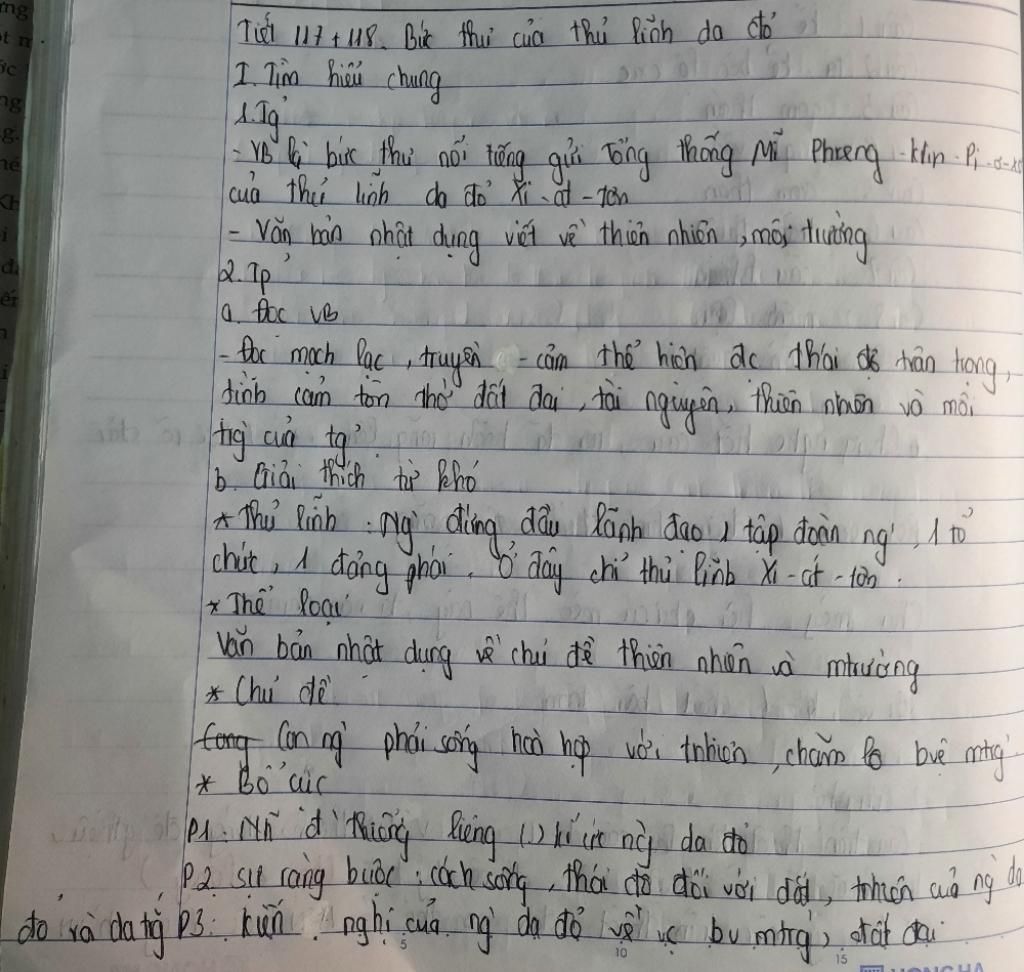 Tiết 117 + 118. Bức thư của thủ lĩnh da đỏ
I. Tìm hiểu chung
1. Tg
- VB là bức thư nổi tiếng gửi Tổng thống Mĩ Phreng-klin-Pi-ơ-xơ
của thủ lĩnh da đỏ Xi-at-tơn
- Văn bản nhật dụng viết về thiên nhiên, môi trường
2. Tp
a. Đọc VB
- Đọc mạch lạc, truyền - cảm thể hiện đc thái độ trân trọng,
tình cảm tôn thờ đất đai, tài nguyên, thiên nhiên và môi
trg' của tg'
b. Giải thích từ khó
* Thủ lĩnh: Ng' đứng đầu lãnh đạo 1 tập đoàn ng', 1 tổ
chức, 1 đảng phái. Ở đây chỉ thủ lĩnh Xi-át-tơn.
* Thể loại
Văn bản nhật dụng về chủ đề thiên nhiên và mtrường
* Chủ đề
Con ng' phải sống hoà hợp với tnhiên, chăm lo bvệ mtrg'
* Bố cục
P1: Nh~ đ' thiêng liêng () kí ức ng' da đỏ
P.2 sự ràng buộc: cách sống, thái độ đối với đất, tnhiên của ng' da
đỏ và da trắg P3: kiến nghị của ng' da đỏ về vc bv mtrg', đất đai
5
10
15
HONG HA